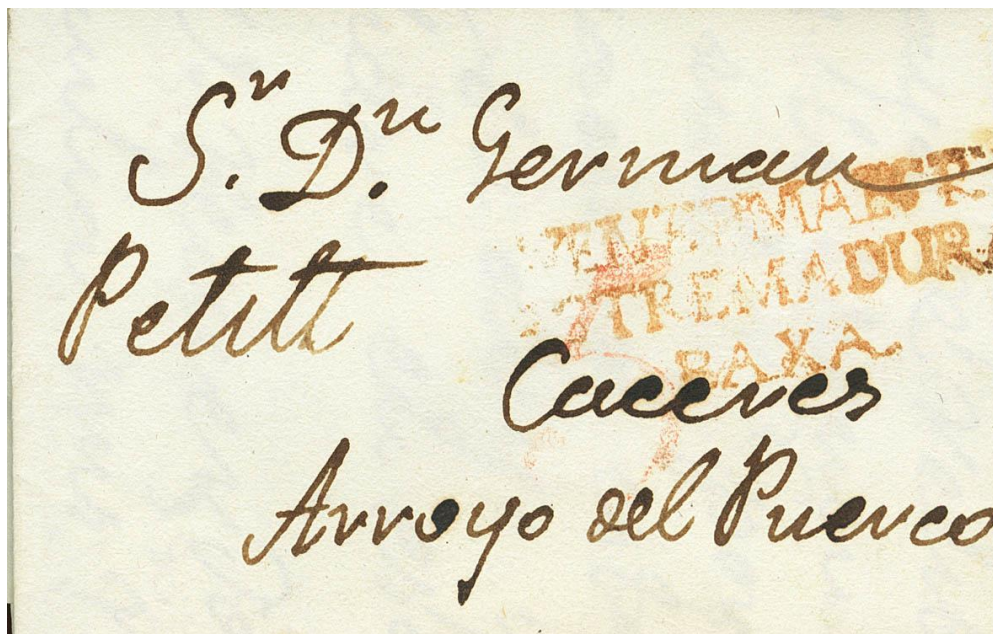 Sr. Dn. German
Petitt
EXTREMADURA
BAXA
Caceres
Arroyo del Puerco